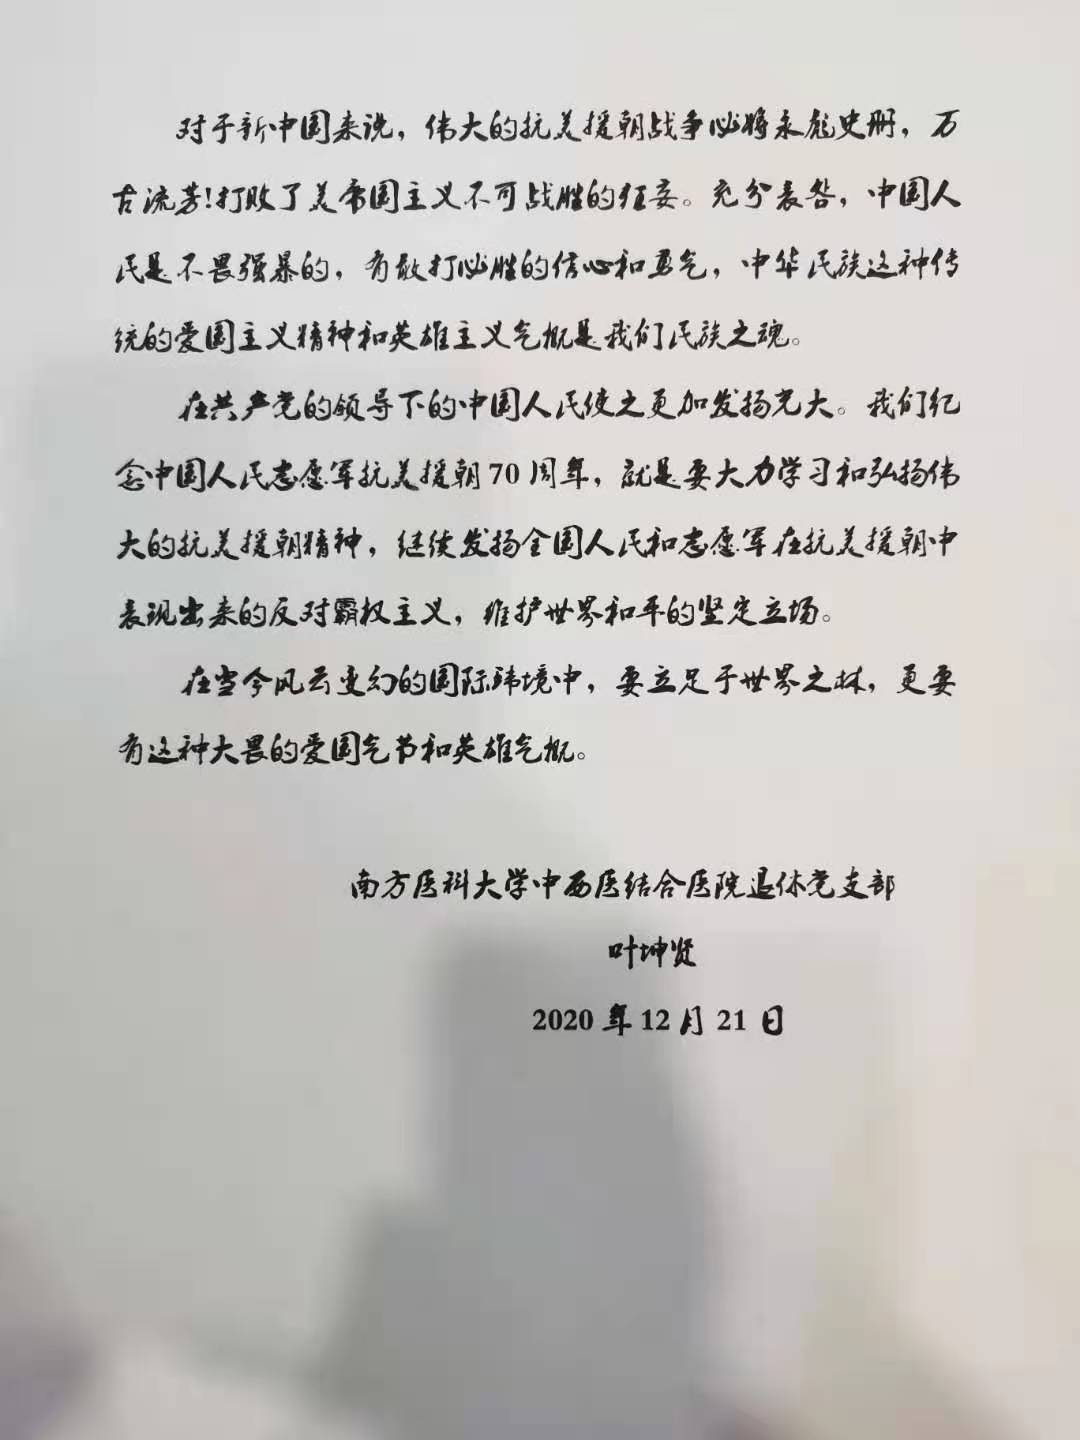 对于新中国来说，伟大的抗美援朝战争必将永彪史册，万
古流芳！打败了美帝国主义不可战胜的狂妄。充分表咎，中国人
民是不畏强暴的，有敢打必胜的信心和勇气，中华民族这种传
统的爱国主义精神和英雄主义气概是我们民族之魂。
在共产党的领导下的中国人民使之更加发扬光大。我们纪
念中国人民志愿军抗美援朝70周年，就是要大力学习和弘扬伟
大的抗美援朝精神，继续发扬全国人民和志愿军在抗美援朝中
表现出来的反对霸权主义，维护世界和平的坚定立场。
在当今风云变幻的国际环境中，要立足于世界之林，更要
有这种大畏的爱国气节和英雄气概。
南方医科大学中西医结合医院退休党支部
叶坤贤
2020年12月21日